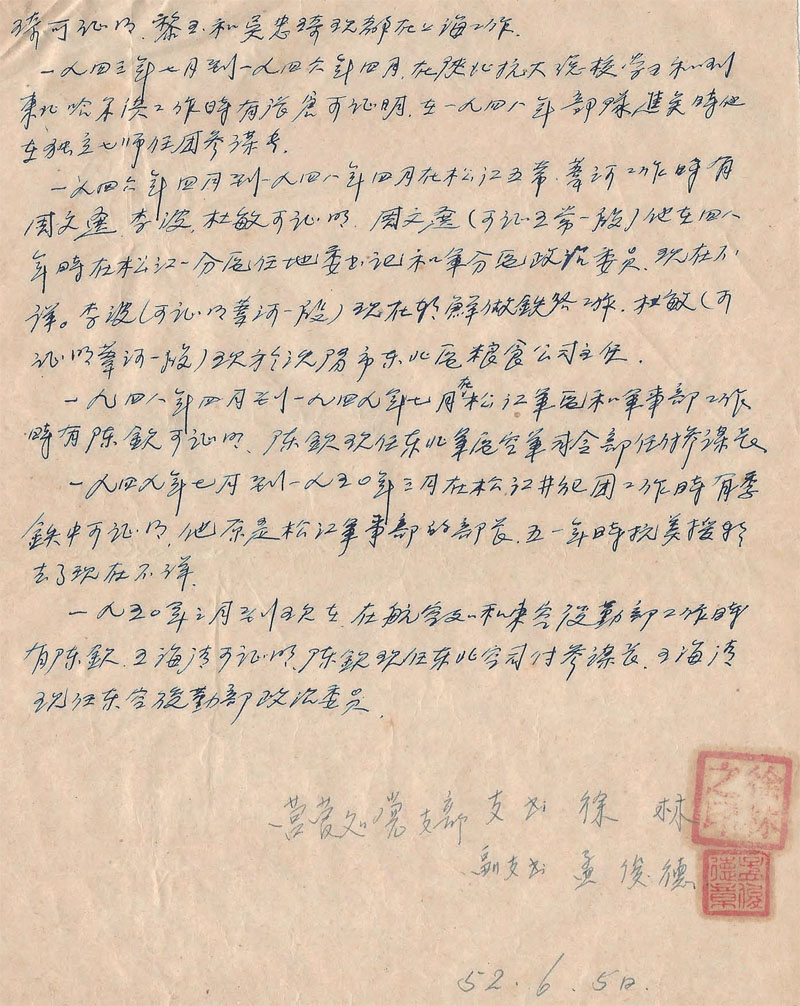 琦可证明。黎玉和吴忠琦现都在上海工作。
一九四三年七月到一九四六年四月，在陕北抗大总校学习和到
东北哈尔滨工作時有張宏可证明，在一九四八年部隊進关時他
在独立七師任团参谋长。
一九四六年四月到一九四八年四月在松江五常、葦河工作時有
周文 李波、杜敏可证明。周文 (可证五常一段)他在四八
年時在松江一分区任地委书记和軍分区政治委员，现在不
详。李波(可证明葦河一段)现在朝鮮做鉄路工作。杜敏(可
证明葦河一段)现于沈陽市东北区粮食公司主任。
一九四八年四月到一九四九年七月在松江軍区和軍事部工作
時有陈欽可证明、陈欽现任东北軍区空軍司令部任付参谋长
一九四九年七月到一九五〇年三月在松江井紀团工作時有季
鉄中可证明，他原是松江軍事部的部長，五一年時抗美援朝
去了现在不详。
一九五〇年三月到现在，在航空处和東空後勤部工作時
有陈欽、王海清可证明，陈欽现任东北空司付参谋长、王海清
现任东空後勤部政治委员。
营管处党支部 支书 徐林
副支书 孟俊德
徐林之印
孟俊德章
52.6.5日.